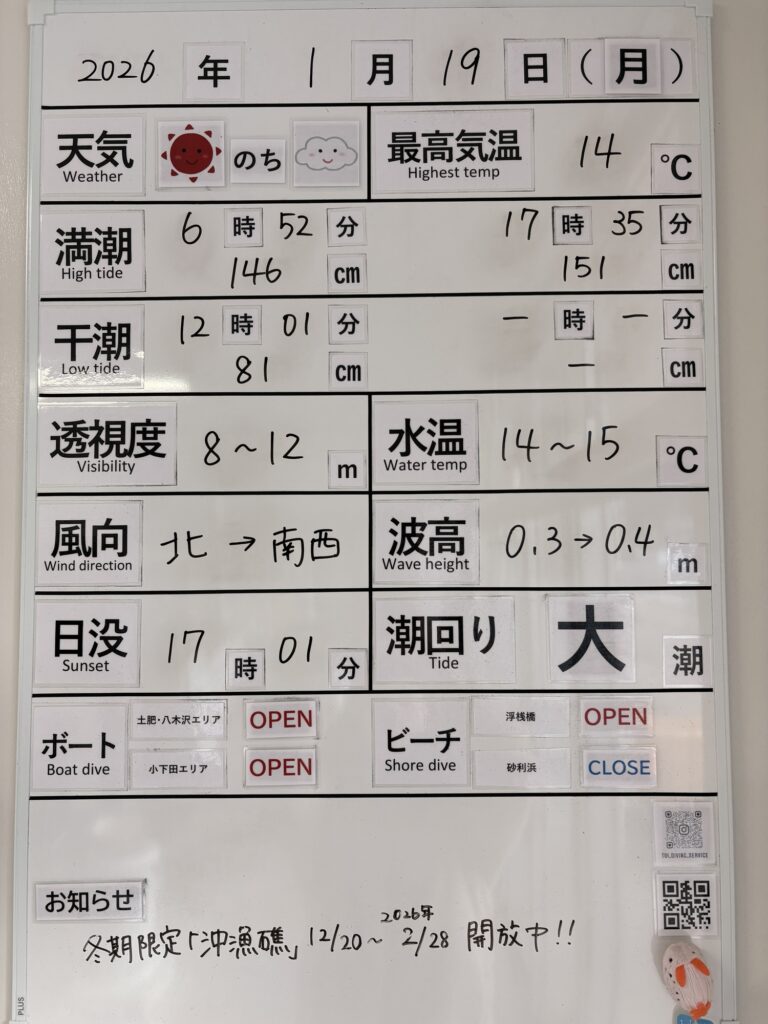 2026 年 1 月 19 日 (月)
天気 のち 最高気温 14 ℃
Weather Highest temp
満潮 6 時 52 分 17 時 35 分
High tide 146 cm 151 cm
干潮 12 時 01 分 一 時 一 分
Low tide 81 cm 一 cm
透視度 8~12 m 水温 14~15 ℃
Visibility Water temp
風向 北→南西 波高 0.3→0.4 m
Wind direction Wave height
日没 17 時 01 分 潮回り 大 潮
Sunset Tide
ボート 土肥・八木沢エリア OPEN ビーチ 浮桟橋 OPEN
Boat dive 小下田エリア OPEN Shore dive 砂利浜 CLOSE
TOI_DIVING_SERVICE
お知らせ
2026年
冬期限定「沖漁礁」12/20~2/28 開放中!!
PLUS